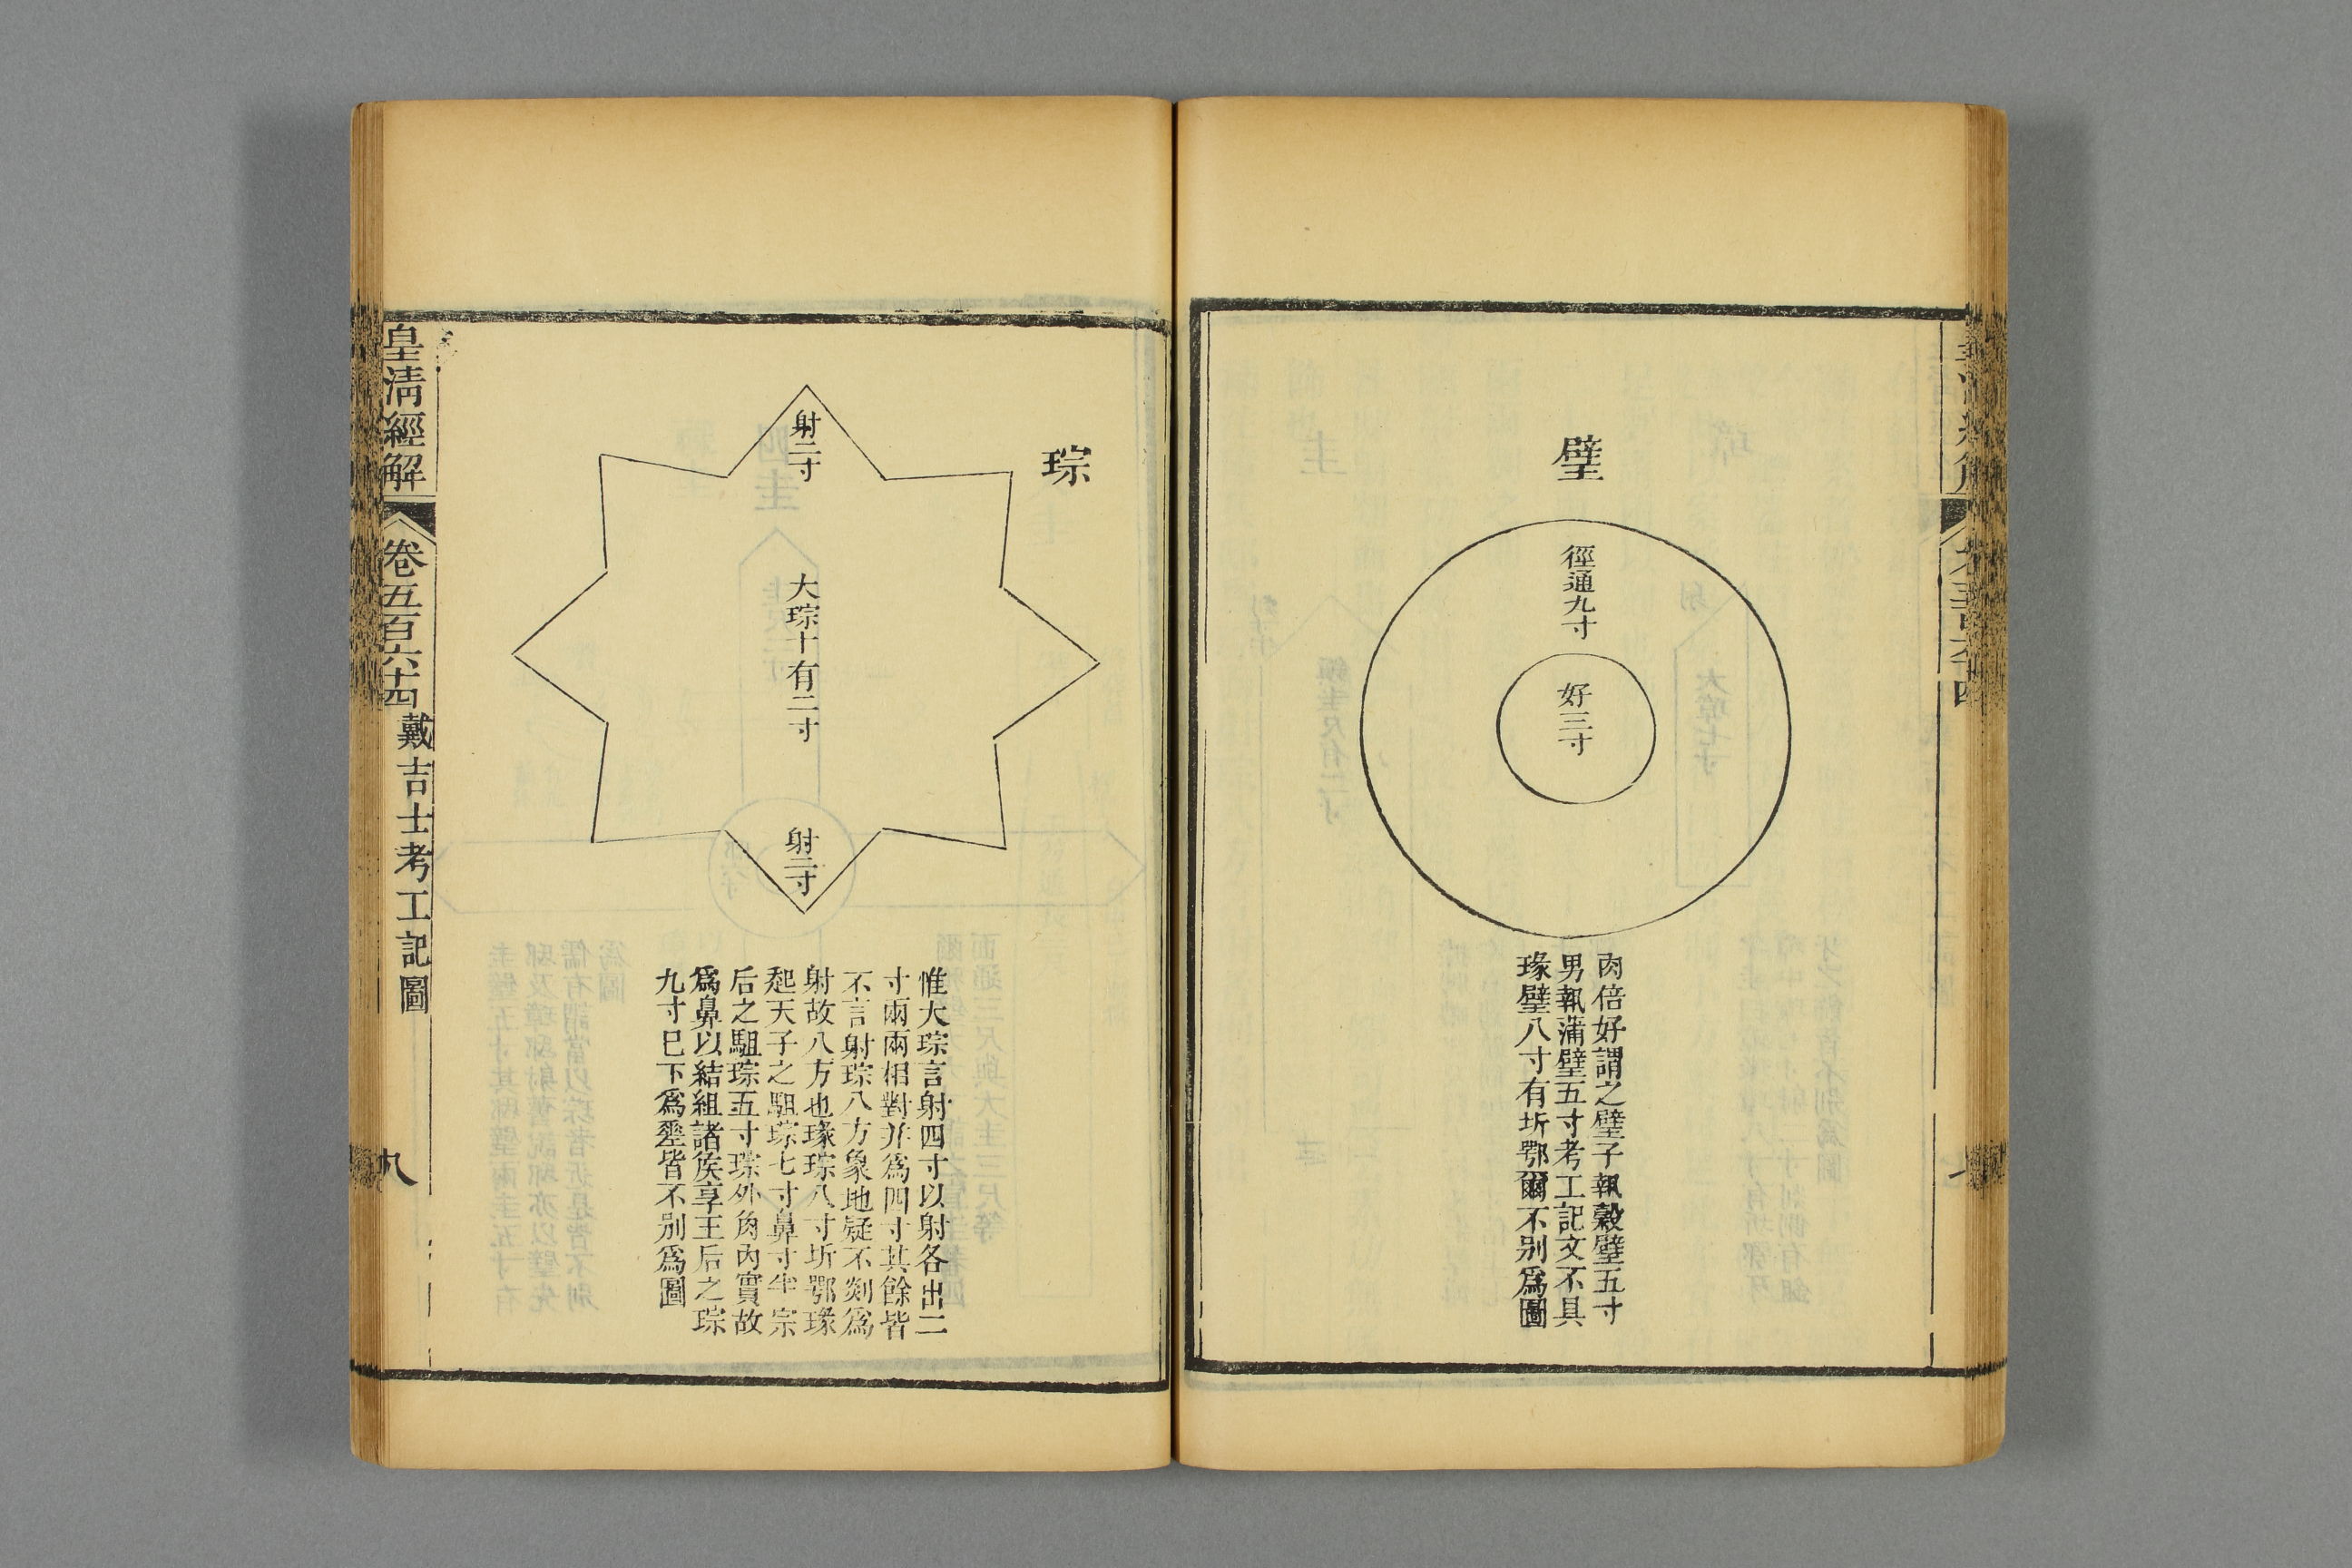 璧
徑通九寸
好三寸
肉倍好謂之璧子執穀璧五寸
男執蒲璧五寸考工記文不具
瑑璧八寸有圻鄂爾不別爲圖
琮
射二寸
大琮十有二寸
射二寸
惟大琮言射四寸以射各出二
寸兩兩相對幷爲四寸其餘皆
不言射琮八方象地疑不剡爲
射故八方也瑑琮八寸圻鄂瑑
起天子之駔琮七寸鼻寸半宗
后之駔琮五寸琮外肉內實故
爲鼻以結組諸矦享王后之琮
九寸巳下爲堊皆不別爲圖
皇清經解
卷五百六十四
戴吉士考工記圖
九